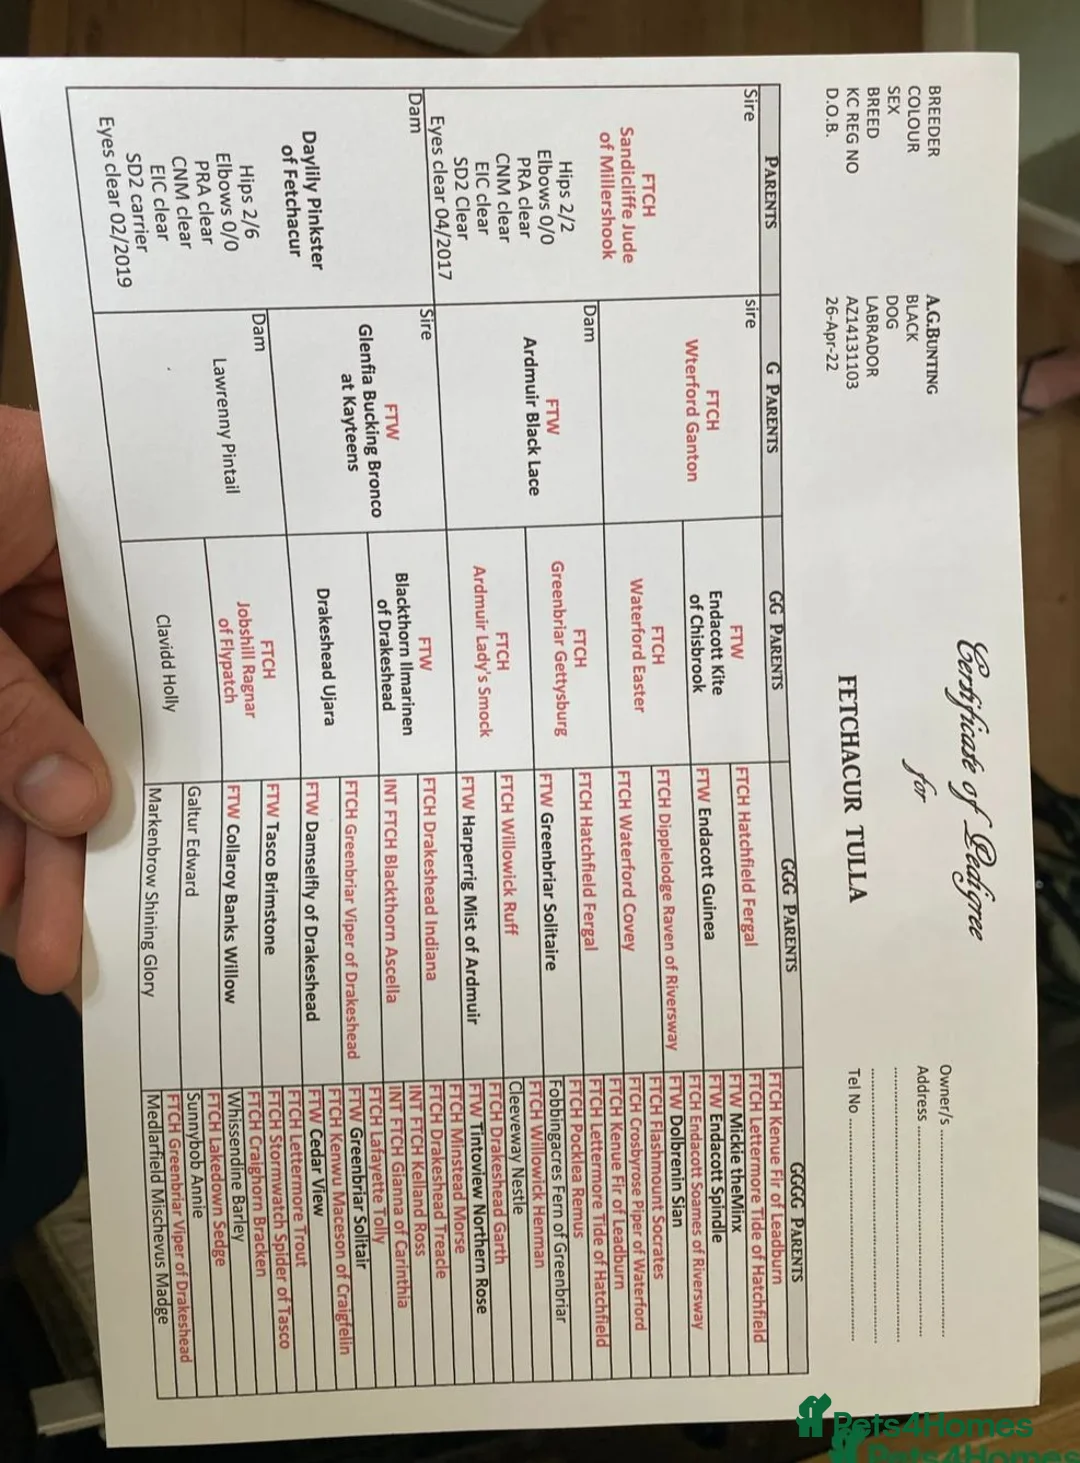 Certificate of Pedigree
for
FETCHACUR TULLA
BREEDER A.G.BUNTING
COLOUR BLACK
SEX DOG
BREED LABRADOR
KC REG NO AZ14131103
D.O.B. 26-Apr-22
Owner/s
Address
Tel No
PARENTS
G PARENTS
GG PARENTS
GGG PARENTS
GGGG PARENTS
Sire
FTCH
Sandicliffe Jude
of Millershook
Hips 2/2
Elbows 0/0
PRA clear
CNM clear
EIC clear
SD2 Clear
Eyes clear 04/2017
Dam
Daylily Pinkster
of Fetchacur
Hips 2/6
Elbows 0/0
PRA clear
CNM clear
EIC clear
SD2 carrier
Eyes clear 02/2019
sire
FTCH
Wterford Ganton
Dam
FTW
Ardmuir Black Lace
Sire
FTW
Glenfia Bucking Bronco
at Kayteens
Dam
Lawrenny Pintail
FTW
Endacott Kite
of Chisbrook
FTCH
Waterford Easter
FTCH
Greenbriar Gettysburg
FTCH
Ardmuir Lady's Smock
FTW
Blackthorn Ilmarinen
of Drakeshead
Drakeshead Ujara
FTCH
Jobshill Ragnar
of Flypatch
Clavidd Holly
FTCH Hatchfield Fergal
FTW Endacott Guinea
FTCH Dipplelodge Raven of Riversway
FTCH Waterford Covey
FTCH Hatchfield Fergal
FTW Greenbriar Solitaire
FTCH Willowick Ruff
FTW Harperrig Mist of Ardmuir
FTCH Drakeshead Indiana
INT FTCH Blackthorn Ascella
FTCH Greenbriar Viper of Drakeshead
FTW Damselfly of Drakeshead
FTW Tasco Brimstone
FTW Collaroy Banks Willow
Galtur Edward
Markenbrow Shining Glory
FTCH Kenue Fir of Leadburn
FTCH Lettermore Tide of Hatchfield
FTW Mickie theMinx
FTW Endacott Spindle
FTCH Endacott Soames of Riversway
FTW Dolbrenin Sian
FTCH Flashmount Socrates
FTCH Crosbyrose Piper of Waterford
FTCH Kenue Fir of Leadburn
FTCH Lettermore Tide of Hatchfield
FTCH Pocklea Remus
Fobbingacres Fern of Greenbriar
FTCH Willowick Henman
Cleeveway Nestle
FTCH Drakeshead Garth
FTW Tintoview Northern Rose
FTCH Minstead Morse
FTCH Drakeshead Treacle
INT FTCH Kelland Ross
INT FTCH Gianna of Carinthia
FTCH Lafayette Tolly
FTW Greenbriar Solitair
FTCH Kenwu Maceson of Craigfelin
FTW Cedar View
FTCH Lettermore Trout
FTCH Stormwatch Spider of Tasco
FTCH Craighorn Bracken
Whissendine Barley
FTCH Lakedown Sedge
Sunnybob Annie
FTCH Greenbriar Viper of Drakeshead
Medlarfield Mischevus Madge
Pets4Homes
Pets4Homes